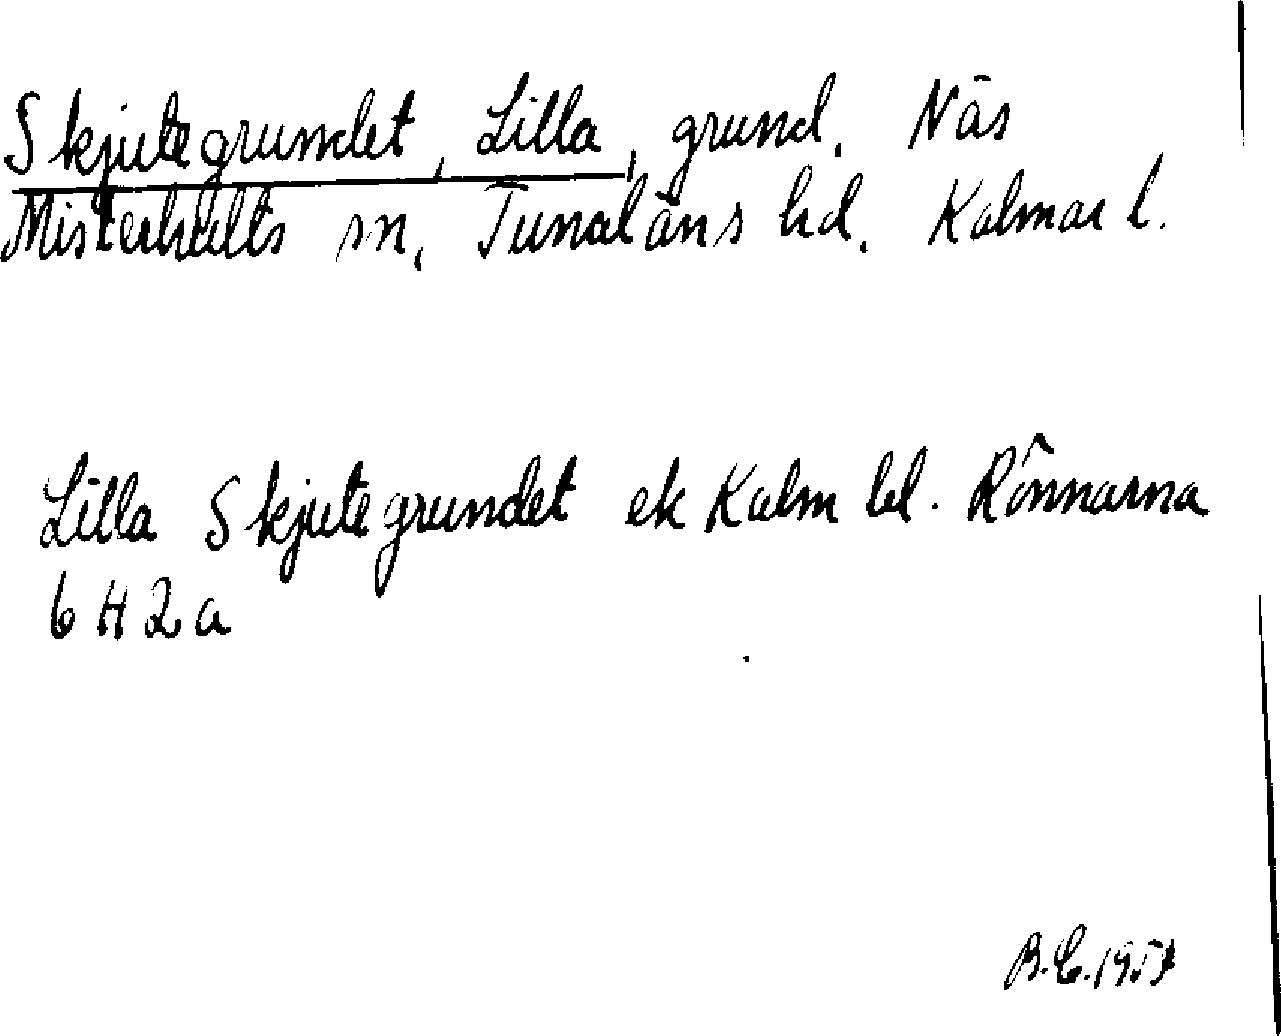 Skjutegrundet, Lilla, grund. Näs
Misterhults sn, Tunaläns hd. Kalmar l.
Lilla Skjutegrundet ek Kalm bl. Rönnarna
6H2a
B.E.